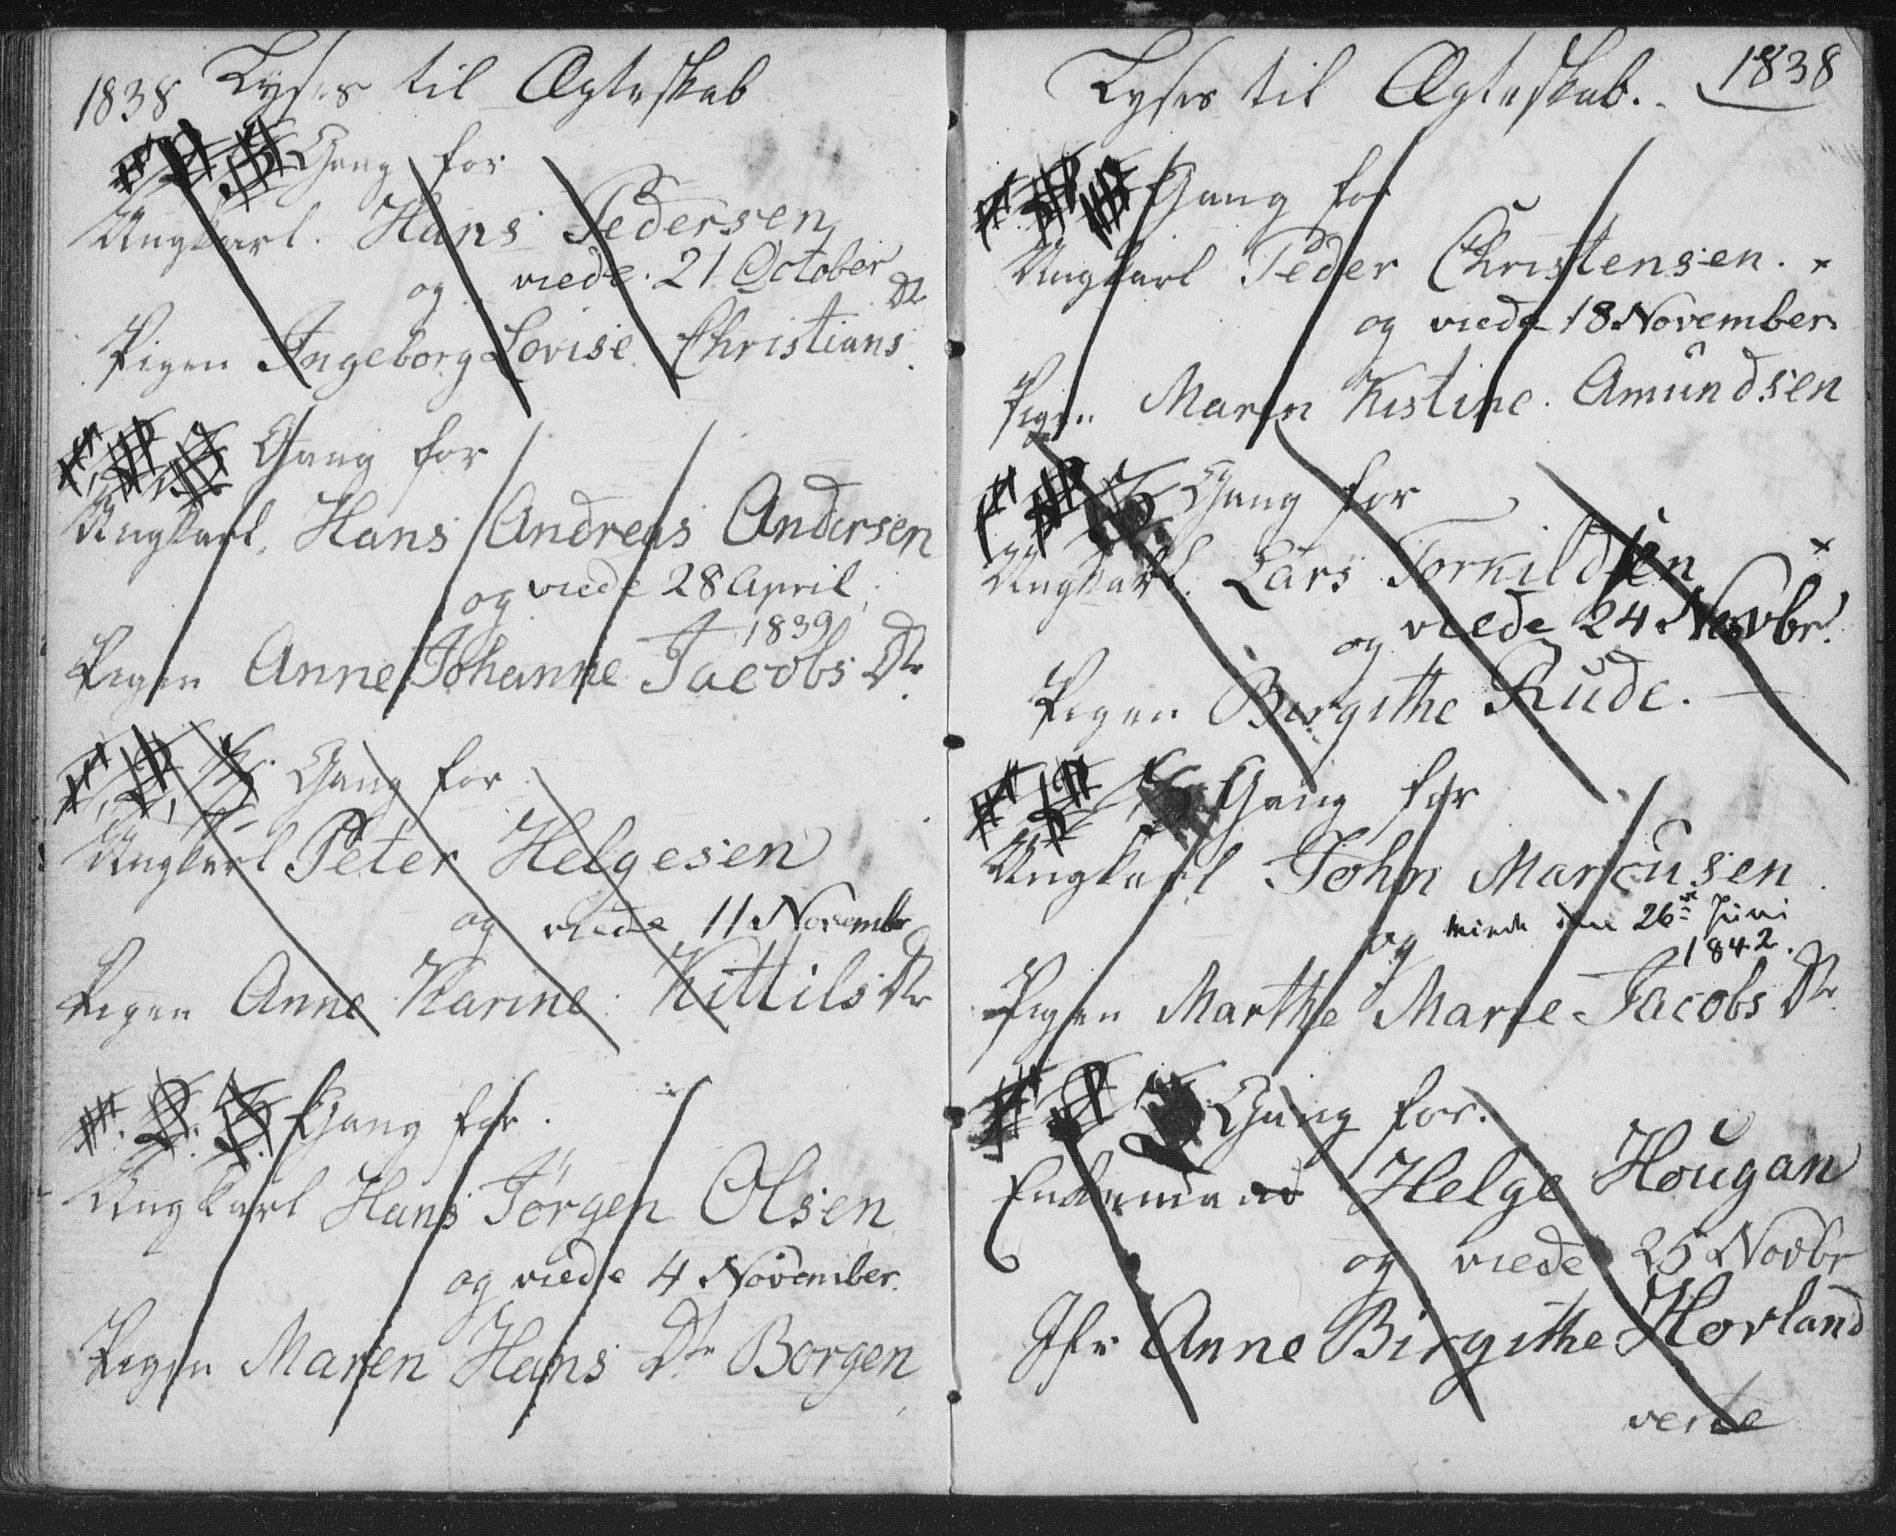 1838 Lyses til Ægteskab
1 2 3 Gang for
Ungkarl. Hans Pedersen
og viede. 21 October
Pigen Ingeborg Lovise Christians Dr
1 2 3 Gang for
Ungkarl. Hans Andreas Andersen
og viede 28 April
1839
Pigen Anne Johanne Jacobs Dr
1, 2, 3 Gang for
Ungkarl Peter Helgesen
og viede 11 November
Pigen Anne Karine Kittils Dr
1. 2. 3. Gang for.
Ungkarl Hans Jörgen Olsen
og viede 4 November.
Pigen Maren Hans Dr Borgen
Lyses til Ægteskab. 1838
1 2 3 Gang for
Ungkarl Peder Christensen. x
og viede 18 November
Pigen Maren Kistine. Amundsen
1 2 3 Gang for
Ungkarl. Lars Torkildsen x
og viede 24 Novbr.
Pigen Birgithe Rude. —
1 2 3 Gang for
Ungkarl John Marcusen
og viede den 26de Juni
1842.
Pigen Marthe Marie Jacobs Dr
1 2 3 Gang for.
Enkemand Helge Hougan
og viede 25 Novbr
Jfr Anne Birgithe Hovland
verte